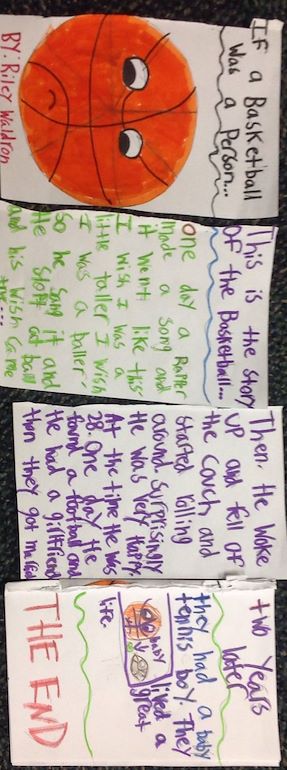 If a Basketball
Was a Person...
BY: Riley Waldron
This is the story
of the Basketball...
one day a Rapper
made a song and
it went like this
I wish I was a
little taller I wish
I was a baller"
So he sang it and
He sloft at ball
and his wish came
true...
Then, He woke
up and fell of
the couch and
started rolling
around surprisingly
He was very Happy.
At the time He was
28. One day He
found a football and
He had a girlfriend
then they got married
two years
later
they had a baby
tennis boy. They
lived a
great
life.
BABY
THE END